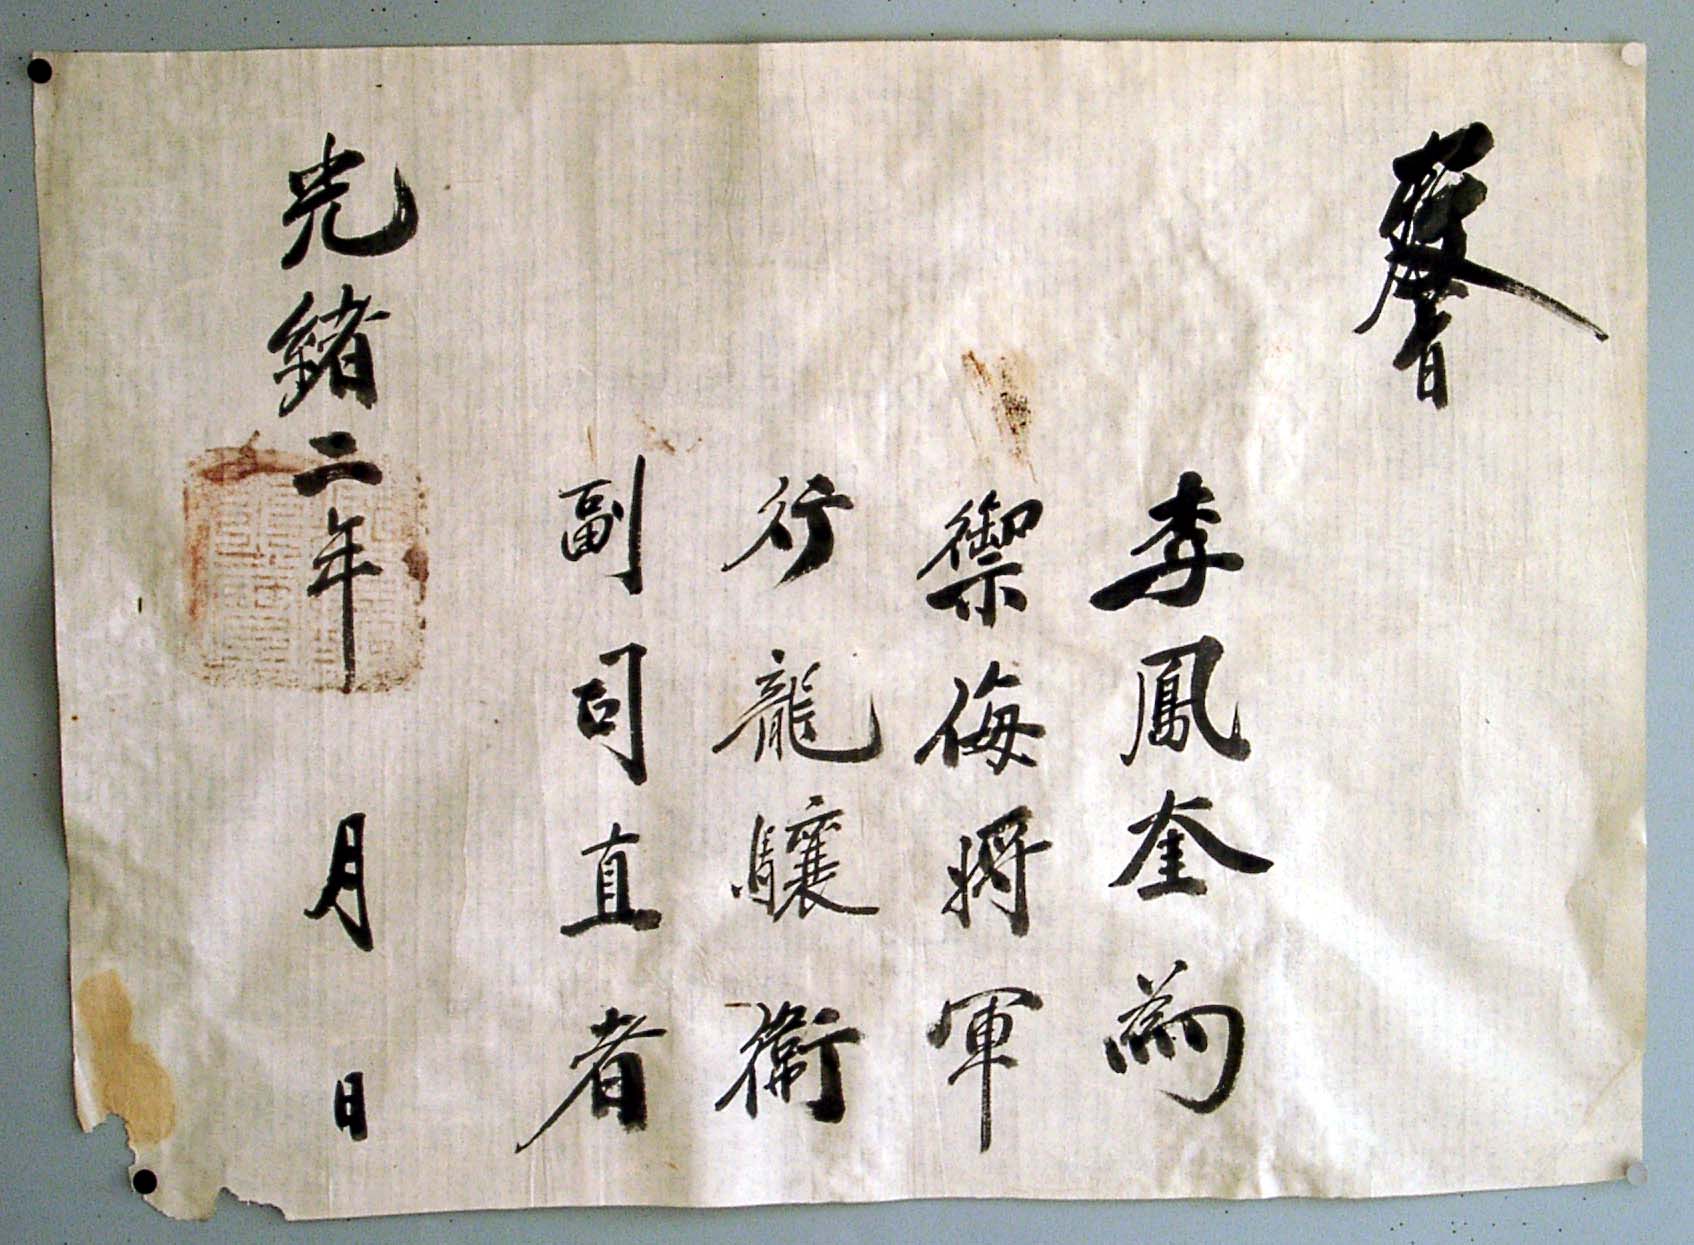 教旨
李鳳奎為
禦侮將軍
行龍驤衛
副司直者
光緒二年 月 日